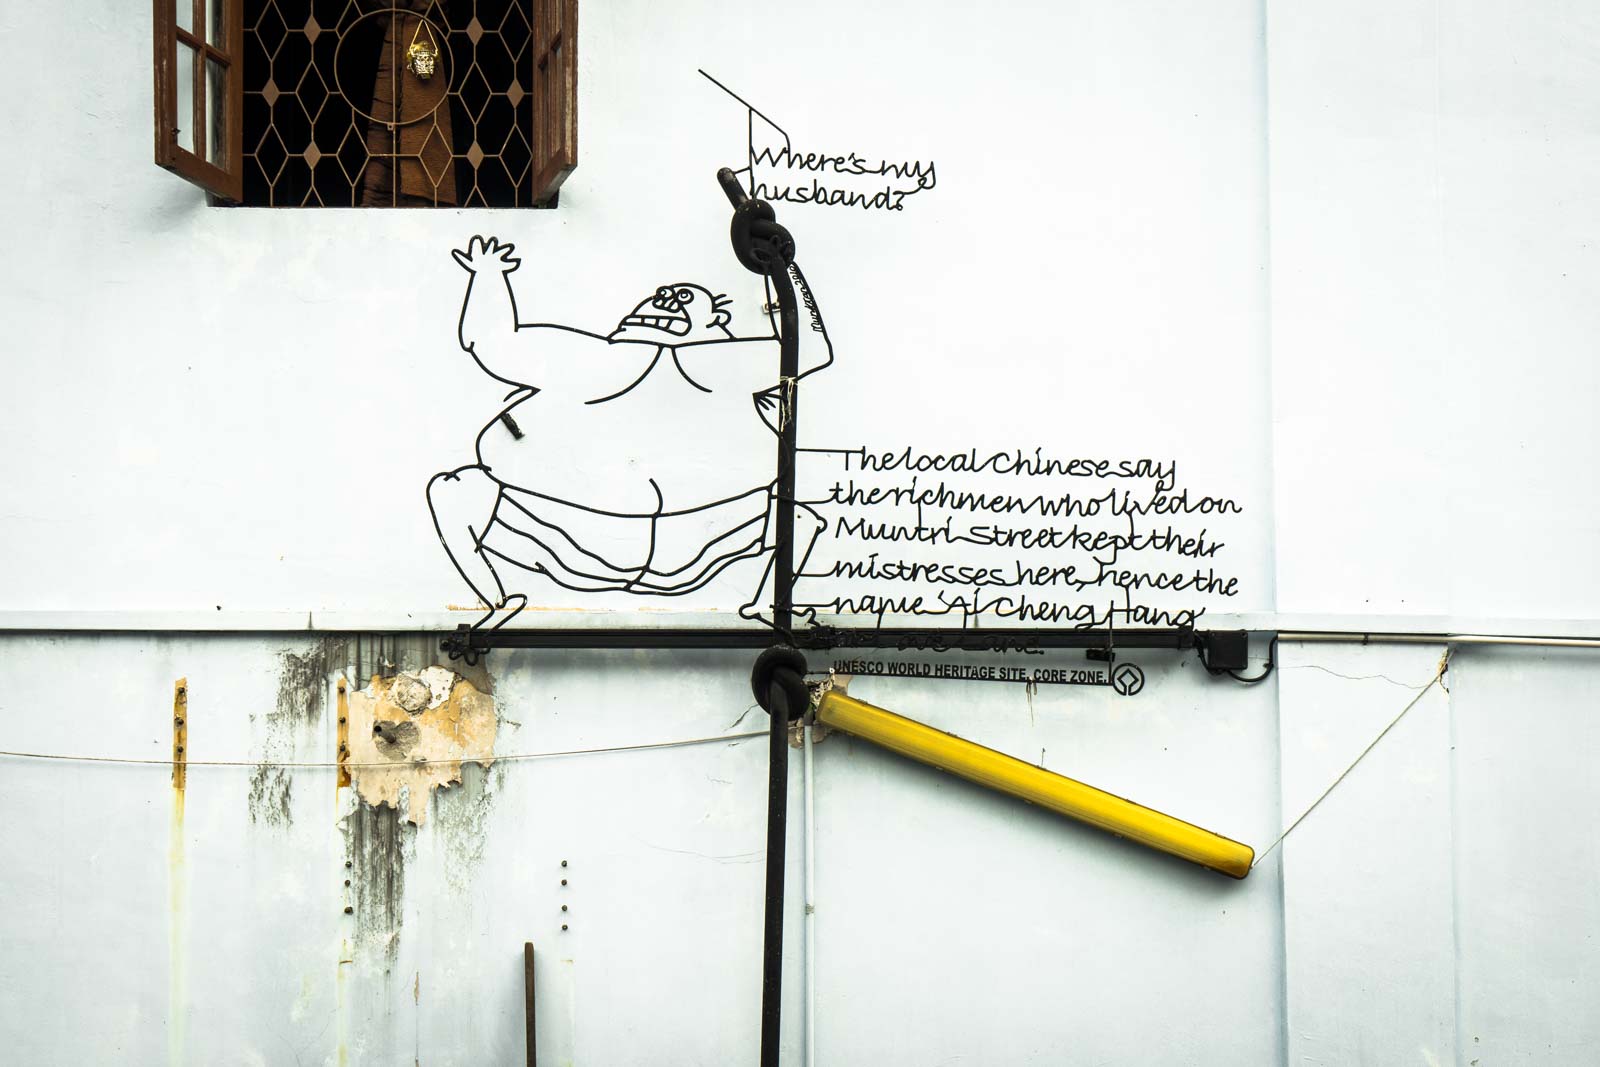 Where's my
husband?
The local Chinese say
the rich men who lived on
Muntri Street kept their
mistresses here, hence the
name 'Ai Cheng Hang'
Love Lane.
UNESCO WORLD HERITAGE SITE, CORE ZONE.